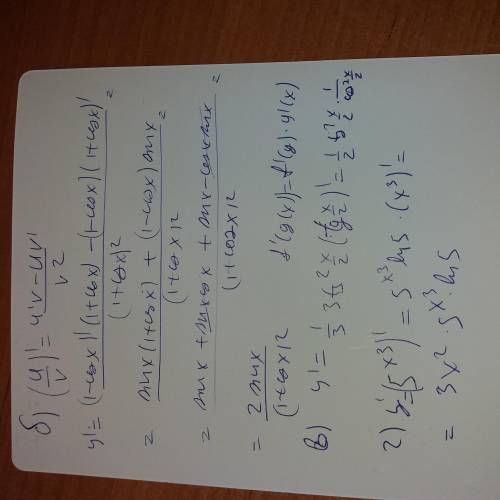 б) (u/v)' = u'v - uv' / v²
y' = (1-cosx)'(1+cosx) - (1-cosx)(1+cosx)' / (1+cosx)² =
= sinx(1+cosx) + (1-cosx)sinx / (1+cosx)² =
= sinx + sinxcosx + sinx - cosxsinx / (1+cosx)² =
= 2sinx / (1+cosx)² f'(g(x)) = f'(g)·g'(x)
в) y' = 1/3 3tg² x/2 (tg x/2)' = 1/2 tg² x/2 · 1/cos² x/2
г) y' = (5^x³)' = 5^x³ ln5 · (x³)' =
= 3x² · 5^x³ · ln5